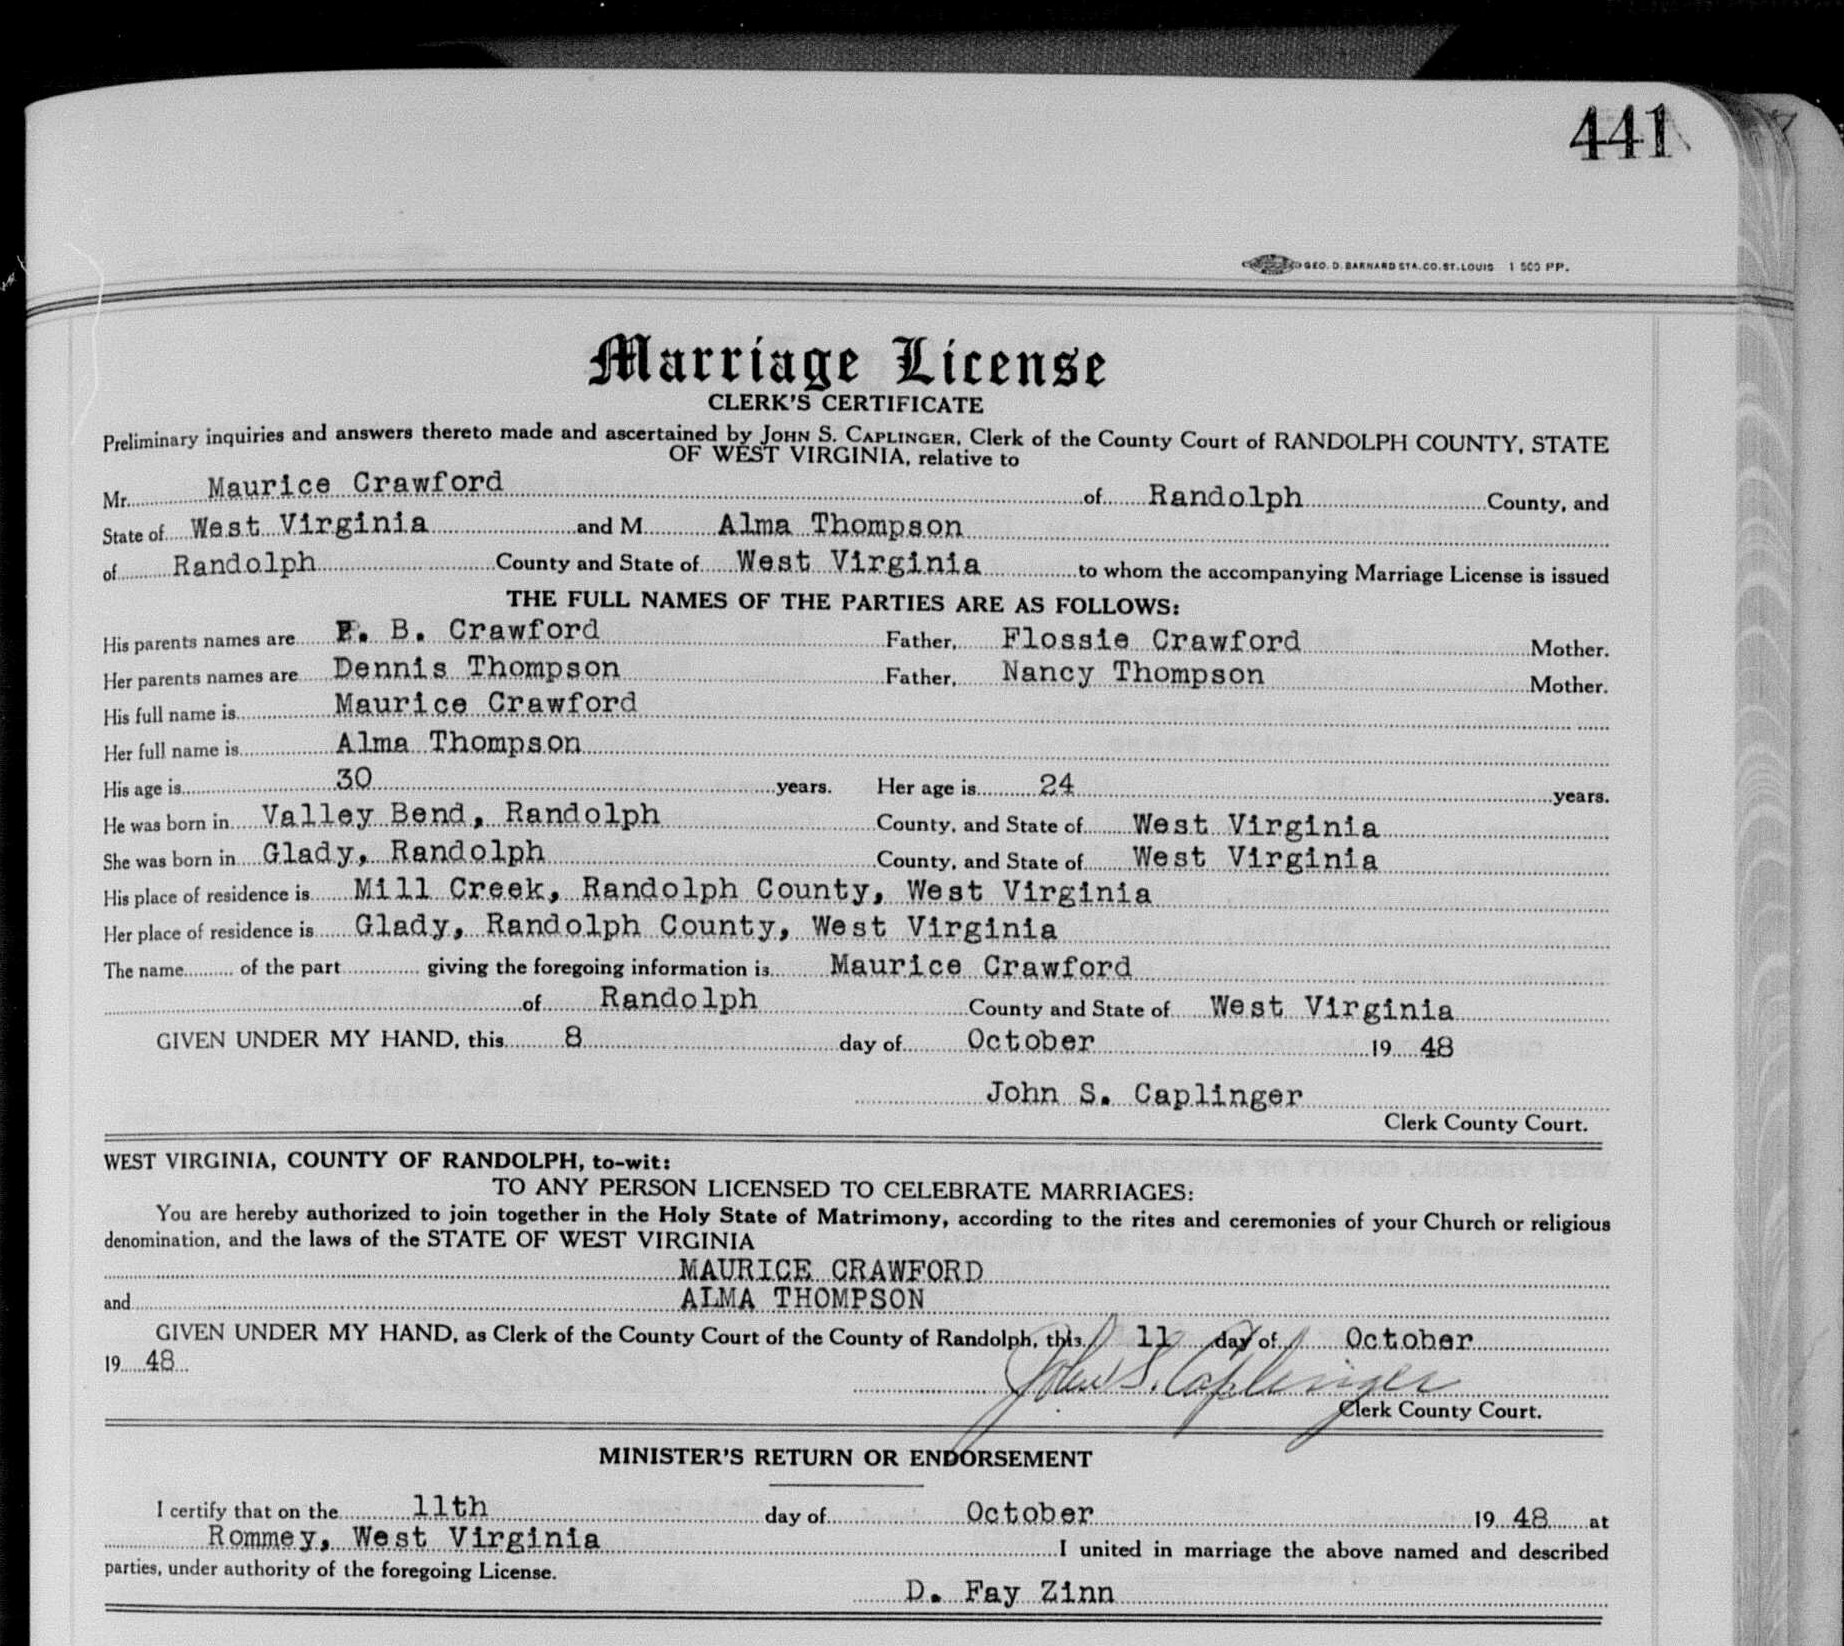 441
GEO. D. BARNARD STA. CO. ST. LOUIS 1 500 PP.
Marriage License
CLERK'S CERTIFICATE
Preliminary inquiries and answers thereto made and ascertained by JOHN S. CAPLINGER, Clerk of the County Court of RANDOLPH COUNTY, STATE
OF WEST VIRGINIA, relative to
Mr. Maurice Crawford of Randolph County, and
State of West Virginia and M Alma Thompson
of Randolph County and State of West Virginia to whom the accompanying Marriage License is issued
THE FULL NAMES OF THE PARTIES ARE AS FOLLOWS:
His parents names are B. Crawford Father, Flossie Crawford Mother.
Her parents names are Dennis Thompson Father, Nancy Thompson Mother.
His full name is Maurice Crawford
Her full name is Alma Thompson
His age is 30 years. Her age is 24 years.
He was born in Valley Bend, Randolph County, and State of West Virginia
She was born in Glady, Randolph County, and State of West Virginia
His place of residence is Mill Creek, Randolph County, West Virginia
Her place of residence is Glady, Randolph County, West Virginia
The name of the part giving the foregoing information is Maurice Crawford
of Randolph County and State of West Virginia
GIVEN UNDER MY HAND, this 8 day of October 19 48
John S. Caplinger
Clerk County Court.
WEST VIRGINIA, COUNTY OF RANDOLPH, to-wit:
TO ANY PERSON LICENSED TO CELEBRATE MARRIAGES:
You are hereby authorized to join together in the Holy State of Matrimony, according to the rites and ceremonies of your Church or religious
denomination, and the laws of the STATE OF WEST VIRGINIA
MAURICE CRAWFORD
and ALMA THOMPSON
GIVEN UNDER MY HAND, as Clerk of the County Court of the County of Randolph, this 11 day of October
19 48
John S. Caplinger
Clerk County Court.
MINISTER'S RETURN OR ENDORSEMENT
I certify that on the 11th day of October 19 48 at
Rommey, West Virginia I united in marriage the above named and described
parties, under authority of the foregoing License.
D. Fay Zinn